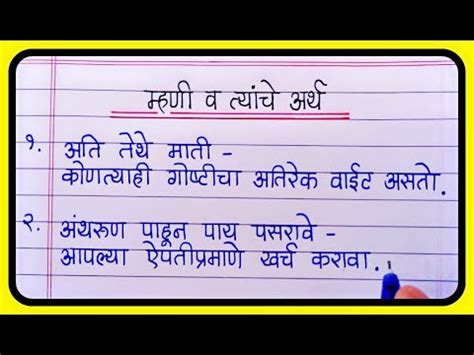 म्हणी व त्यांचे अर्थ
१. अति तेथे माती -
कोणत्याही गोष्टीचा अतिरेक वाईट असतो.
२. अंथरुण पाहून पाय पसरावे -
आपल्या ऐपतीप्रमाणे खर्च करावा.